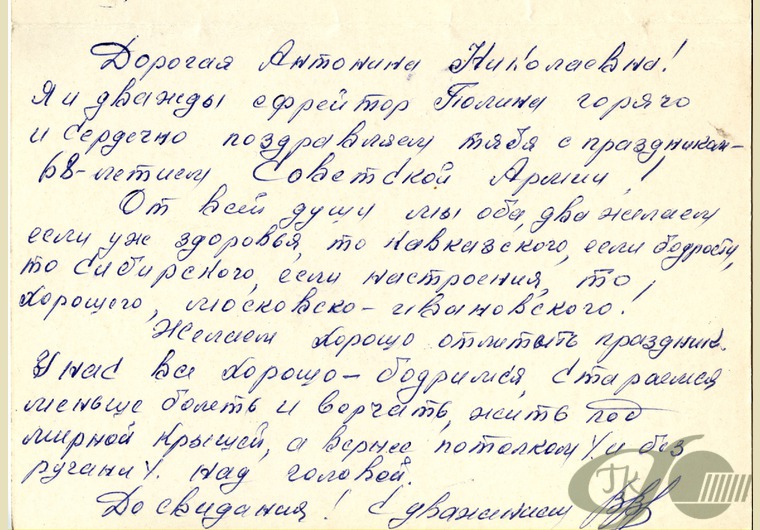 Дорогая Антонина Николаевна!
Я и дважды ефрейтор Полина горячо
и сердечно поздравляем тябя с праздником–
68-летием Советской Армии!
От всей души мы оба, два желаем
если уж здоровья, то кавказского, если бодрости,
то сибирского, если настроения, то,
хорошего, московско-ивановского!
Желаем хорошо отметить праздник.
У нас все хорошо – бодримся, стараемся
меньше болеть и ворчать, жить под
мирной крышей, а вернее потолком и без
ругани над головой.
До свидания! С уважением
ГК